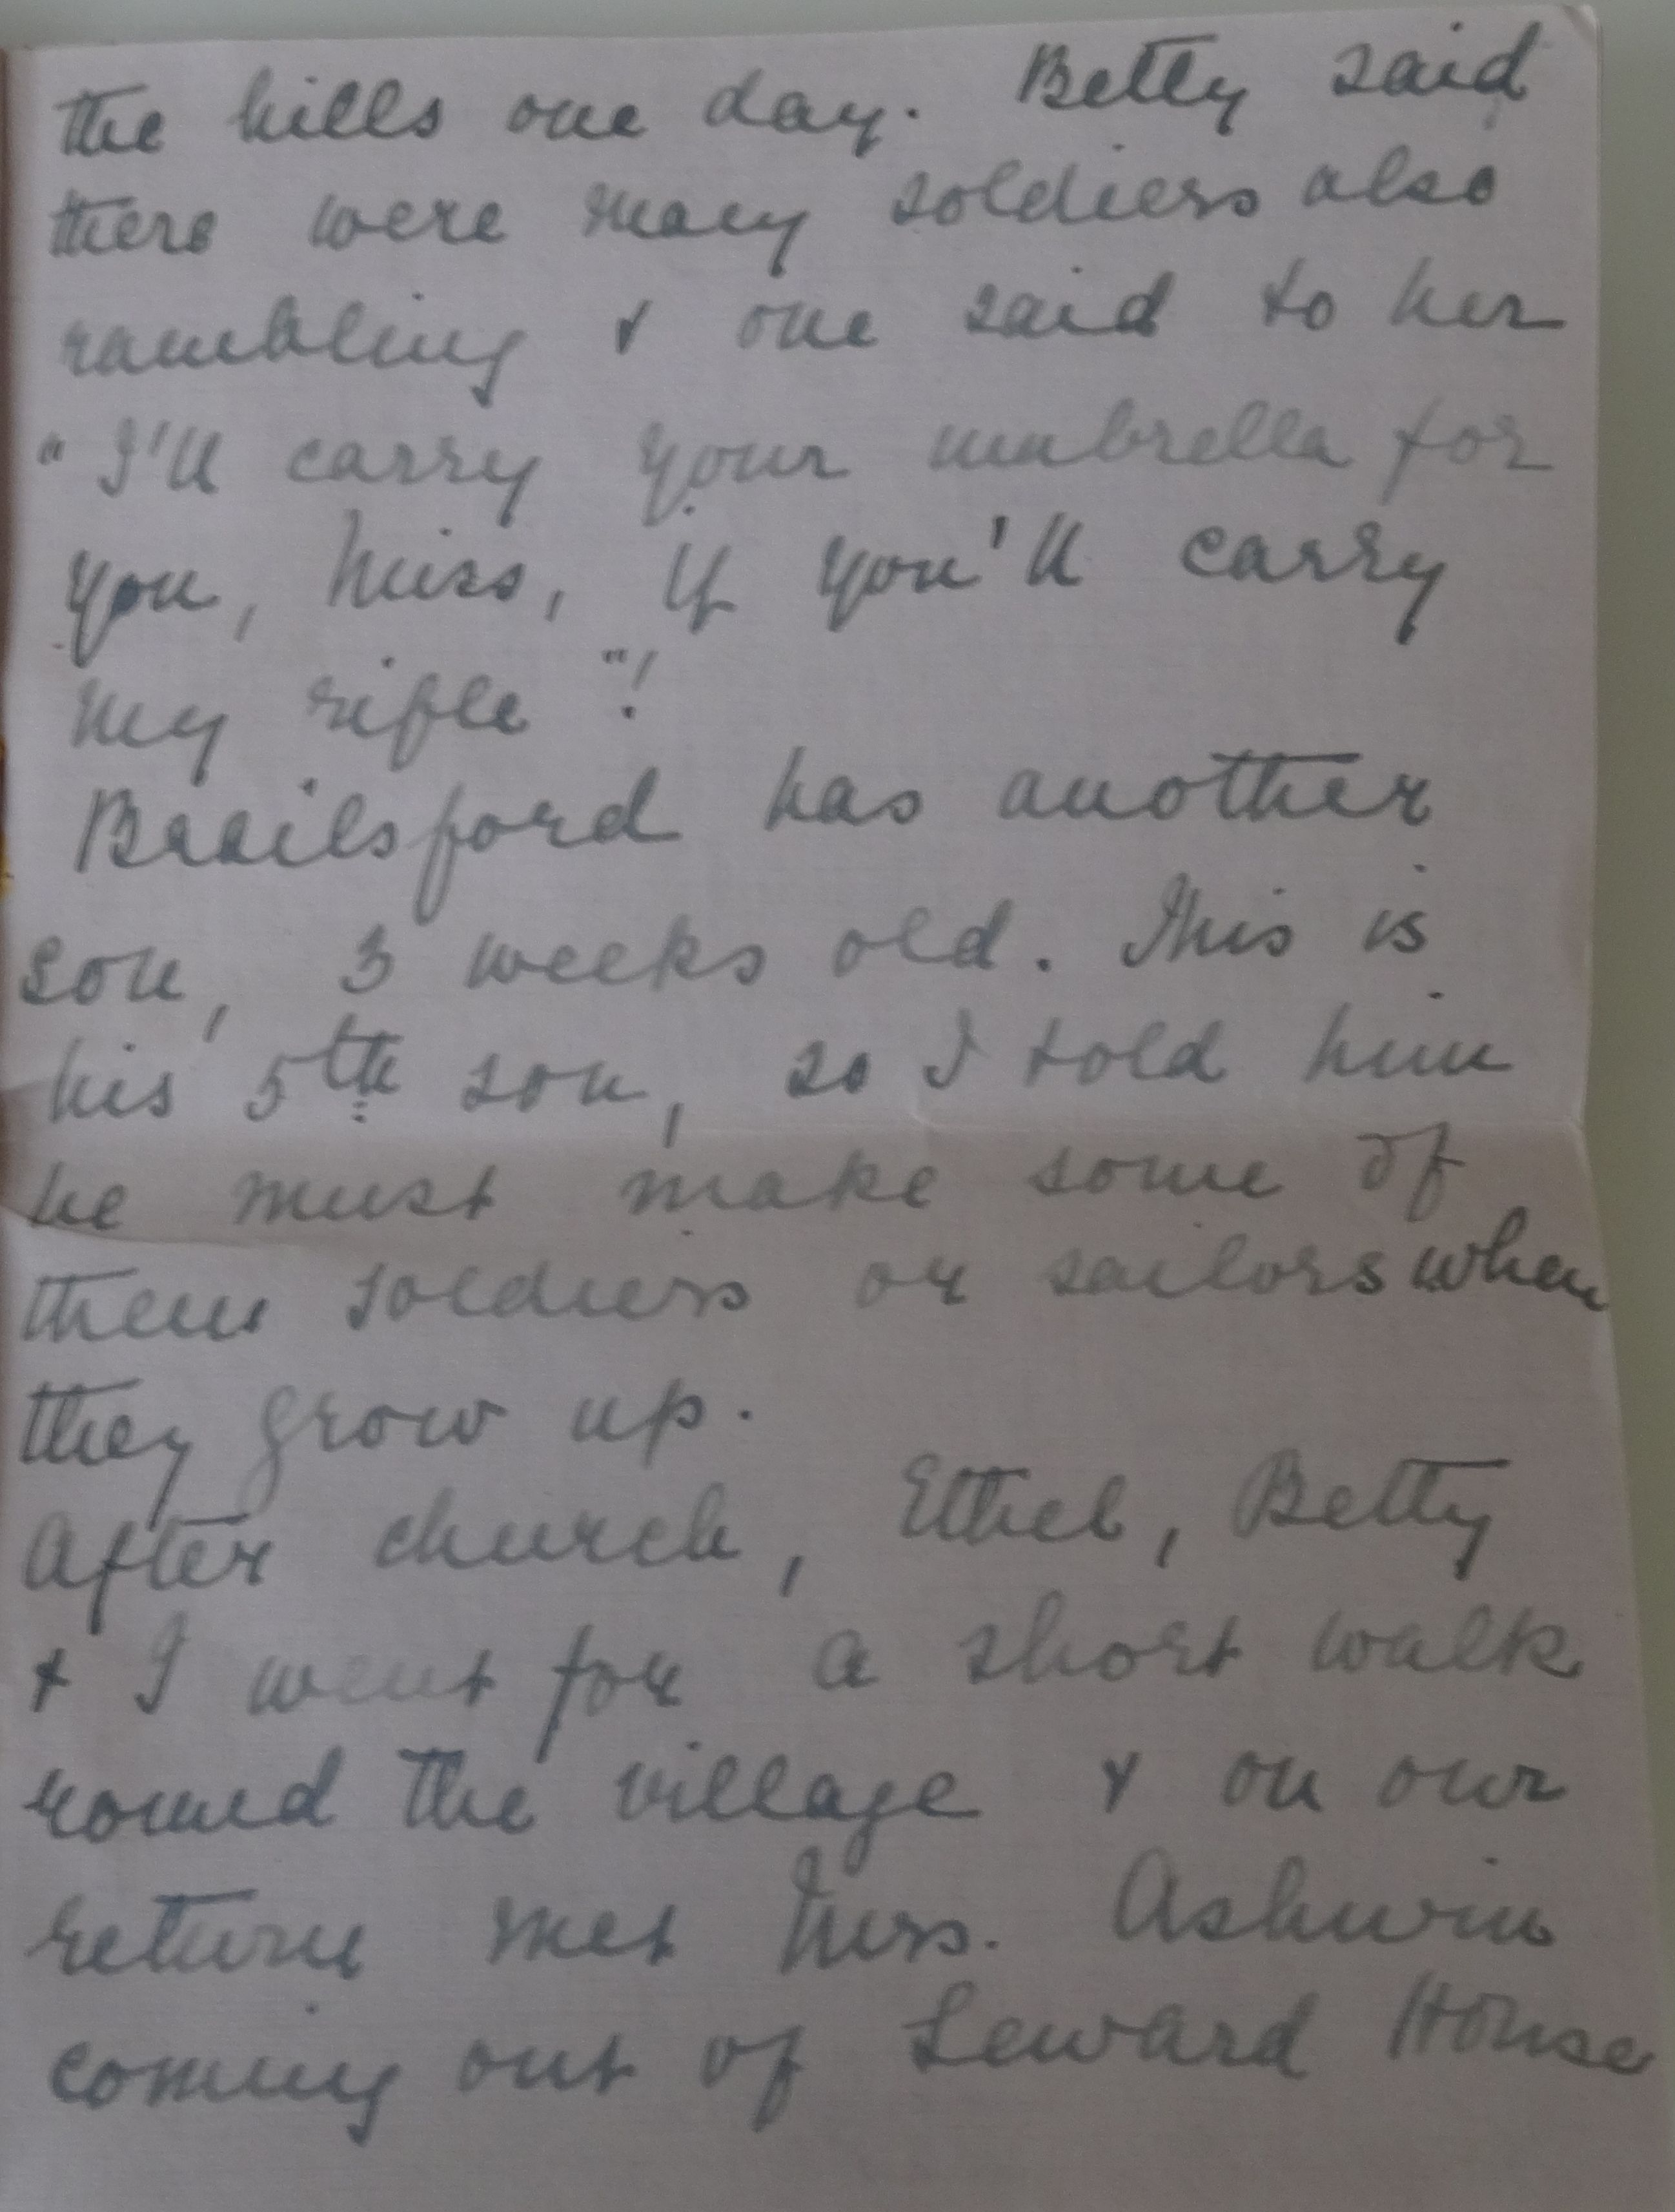 the hills one day. Betty said
there were many soldiers also
rambling & one said to her
"I'll carry your umbrella for
you, Miss, if you'll carry
my rifle"!
Brailsford has another
son, 3 weeks old. This is
his 5th son, so I told him
he must make some of
them soldiers or sailors when
they grow up.
After church, Ethel, Betty
& I went for a short walk
round the village & on our
return met Mrs. Ashwin
coming out of Seward House